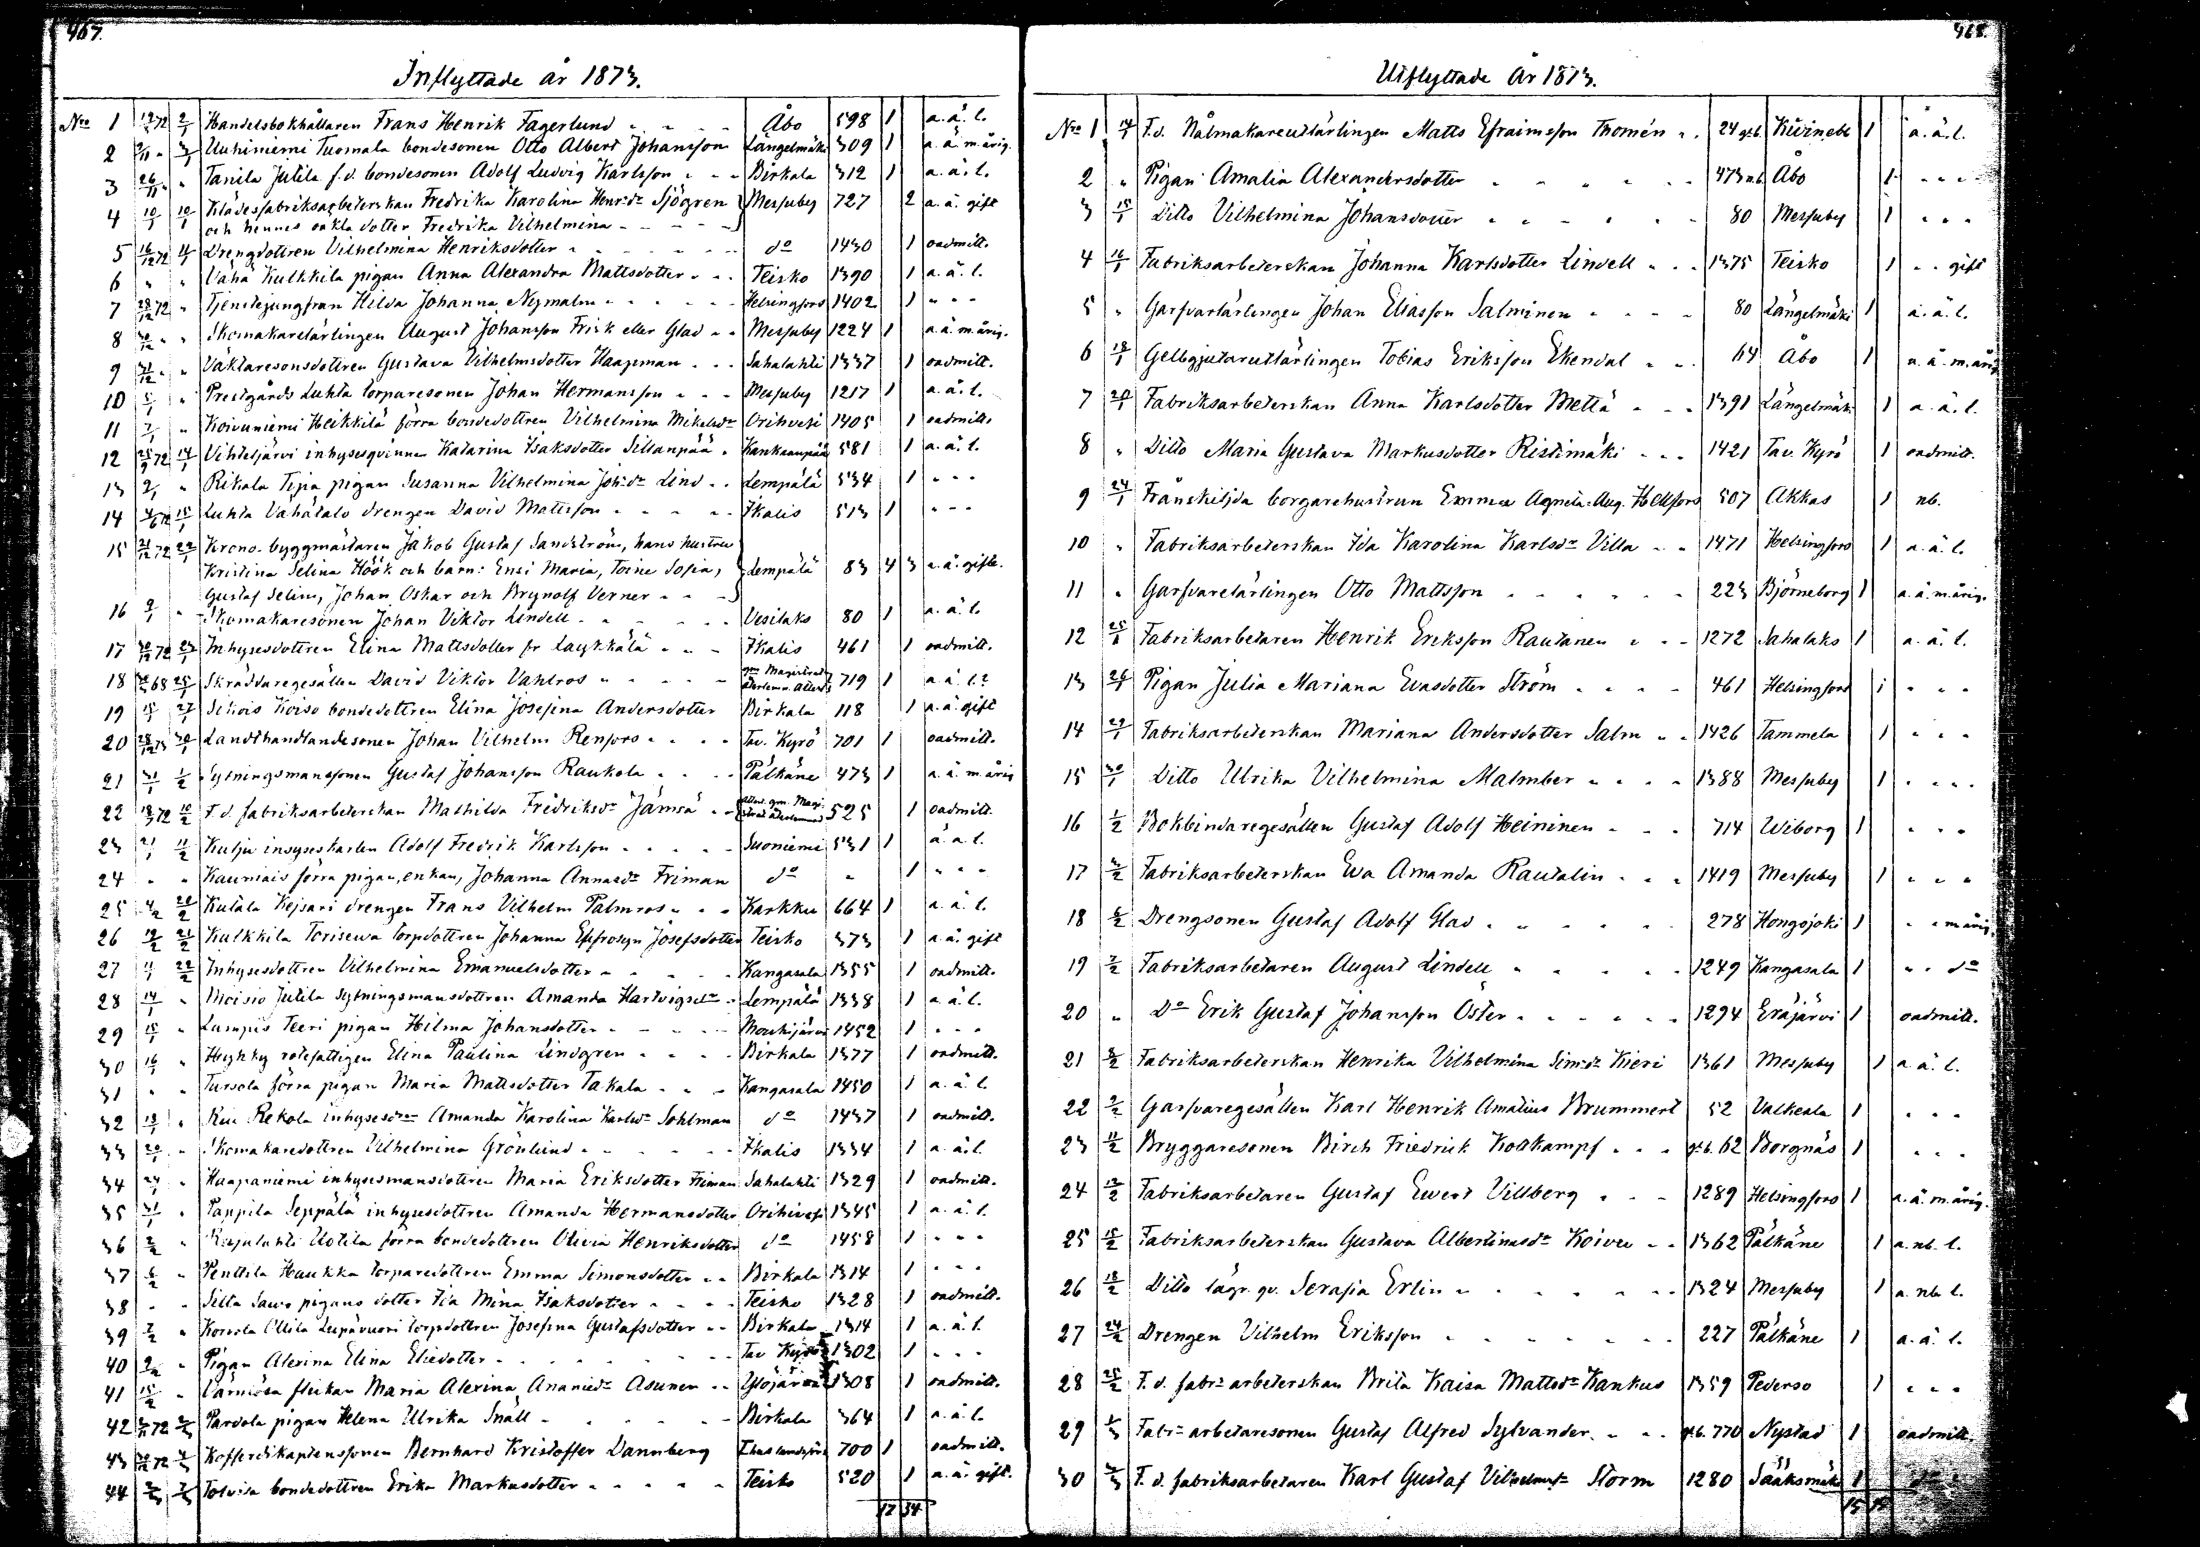 467.
Inflyttade år 1873.
No 1 19/12 72 2/1 Handelsbokhållaren Frans Henrik Fagerlund Åbo 598 1 a.ä.l.
2 3/1 Uuhiniemi Tuomala bondesonen Otto Albert Johansson Längelmäki 309 1 a.ä.m.årig.
3 26/11 " Tanila Jutila f.d. bondesonen Adolf Ludvig Karlsson Birkala 312 1 a.ä.l.
4 10/1 10/1 Klädesfabriksarbeterskan Fredrika Karolina Henr:dr Sjögren Messuby 727 2 a.ä. gift
och hennes oäkta dotter Fredrika Vilhelmina
5 16/12 72 11/1 Drengdottren Vilhelmina Henriksdotter do 1430 1 oadmitt.
6 " " Vähä Kulkkila pigan Anna Alexandra Mattsdotter Teisko 1390 1 a.ä.l.
7 28/12 72 " Tjenstejungfrun Hilda Johanna Nymalm Helsingfors 1402 1 " " "
8 30/12 " " Skomakarelärlingen August Johansson Frisk eller Glad Messuby 1224 1 a.ä.m.årig.
9 31/12 " " Vaktaresonsdottren Gustava Vilhelmsdotter Haapeman Sahalahti 1337 1 oadmitt.
10 5/1 " Prestgårds Luhta torparesonen Johan Hermansson Messuby 1217 1 a.ä.l.
11 7/1 " Koivuniemi Heikkilä förra bondedottren Vilhelmina Mikelsdr Orihvesi 1405 1 oadmitt.
12 25/9 72 14/1 Vihteljärvi inhysesqvinnan Katarina Isaksdotter Sillanpää Kankaanpää 581 1 a.ä.l.
13 2/1 " Rikala Tipa pigan Susanna Vilhelmina Joh:dr Lind Lempälä 534 1 " " "
14 15/1 Luhta Vähätalo drengen David Mattsson Ikalis 513 1 " " "
15 31/12 72 22/1 Krono-byggmästaren Jakob Gustaf Sandström, hans hustru
Kristina Selina Höök och barn: Ensi Maria, Toine Sofia, Lempälä 83 4 3 a.ä. gifte.
Gustaf Selim, Johan Oskar och Brynolf Verner
16 9/1 " Skomakaresonen Johan Viktor Lindell Vesilaks 80 1 a.ä.l.
17 30/12 72 23/1 Inhysesdottren Elina Mattsdotter fr Laykkälä Ikalis 461 1 oadmitt.
18 68 25/1 Skräddaregesällen David Viktor Vahlros 719 1 a.ä.l.?
19 15/1 27/1 Sikois Koiso bondedottren Elina Josefina Andersdotter Birkala 118 1 a.ä. gift
20 28/12 73 30/1 Landthandlandesonen Johan Vilhelm Renfors Tav. Kyrö 701 1 oadmitt.
21 31/1 1/2 Sytningsmanssonen Gustaf Johansson Raukola Pälkäne 473 1 a.ä.m.årig
22 72 10/2 F.d. fabriksarbeterskan Mathilda Fredriksdr Jämsä 525 1 oadmitt.
23 21/1 11/2 Kulju insyseskarlen Adolf Fredrik Karlsson Suoniemi 531 1 ä.a.l.
24 " " Kauniais förra pigan, enkan, Johanna Annasdr Friman do " 1 " " "
25 4/2 20/2 Kutala Kejsari drengen Frans Vilhelm Palmros Karkku 664 1 a.ä.l.
26 19/2 21/2 Kulkkila Torisewa torpdottren Johanna Efrosyn Josefsdotter Teisko 373 1 a.ä. gift
27 11/1 22/2 Inhysesdottren Vilhelmina Emanuelsdotter Kangasala 1355 1 oadmitt.
28 14/1 " Moisio Jutila sytningsmansdottren Amanda Hartvigsdr Lempälä 1338 1 a.ä.l.
29 15/1 " Lumpis Teeri pigan Hilma Johansdotter Mouhijärvi 1452 1 " " "
30 16/1 " Hyhky rotefattigen Elina Paulina Lindgren Birkala 1377 1 oadmitt.
31 " " Tursola förra pigan Maria Mattsdotter Takala Kangasala 1450 1 a.ä.l.
32 18/1 " Rekola inhysesdrn Amanda Karolina Karlsdr Sohlman do 1437 1 oadmitt.
33 20/1 " Skomakaredottren Vilhelmina Grönlund Ikalis 1334 1 a.ä.l.
34 24/1 " Haapaniemi inhysesmansdottren Maria Eriksdotter Friman Sahalahti 1329 1 oadmitt.
35 31/1 " Pappila Seppälä inhysesdottren Amanda Hermansdotter Orihivesi 1345 1 a.ä.l.
36 3/2 " Rajalahti Uotila förra bondedottren Olivia Henriksdotter do 1458 1 " " "
37 6/2 " Penttila Haukka torparedottren Emma Simonsdotter Birkala 1314 1 " " "
38 " " Silta Sawo pigans dotter Ida Mina Isaksdotter Teisko 1328 1 oadmitt.
39 7/2 " Ollila Lepävuori torpdottren Josefina Gustafsdotter Birkala 1314 1 a.ä.l.
40 " Pigan Alexina Elina Eliedotter Tav Kyrö 1302 1 " " "
41 15/2 " flickan Maria Alexina Ananiedr Asunen Ylöjärvi 1308 1 oadmitt.
42 72 Pardola pigan Helena Ulrika Snäll Birkala 364 1 a.ä.l.
43 72 Kofferdikaptenssonen Bernhard Kristoffer Dannberg 700 1 oadmitt.
44 Tolvila bondedottren Erika Markusdotter Teisko 520 1 a.ä. gift.
12 34
468.
Utflyttade år 1873.
No 1 14/1 F.d. Nålmakareutlärlingen Matts Efraimsson Thomén 24 gb. Kiwineb 1 a.ä.l.
2 " Pigan Amalia Alexandersdotter 473 nb. Åbo 1 " " "
3 15/1 Ditto Vilhelmina Johansdotter 80 Messuby 1 " " "
4 16/1 Fabriksarbeterskan Johanna Karlsdotter Lindell 1375 Teisko 1 " " gift
5 " Garfvarlärlingen Johan Eliasson Salminen 80 Längelmäki 1 a.ä.l.
6 18/1 Gelbgjutareutlärlingen Tobias Eriksson Ekendal 64 Åbo 1 a.ä.m.årig
7 20/1 Fabriksarbeterskan Anna Karlsdotter Mettä 1391 Längelmäki 1 a.ä.l.
8 " Ditto Maria Gustava Markusdotter Ristimäki 1421 Tav. Kyrö 1 oadmitt.
9 24/1 Frånskiljda borgarehustrun Emma Agneta Aug. Hellfors 507 Akkas 1 nb.
10 " Fabriksarbeterskan Ida Karolina Karlsdr Villa 1471 Helsingfors 1 a.ä.l.
11 " Garfvarelärlingen Otto Mattsson 223 Björneborg 1 a.ä.m.årig.
12 25/1 Fabriksarbetaren Henrik Eriksson Rautanen 1272 Sahalaks 1 a.ä.l.
13 28/1 Pigan Julia Mariana Evasdotter Ström 461 Helsingfors 1 " " "
14 29/1 Fabriksarbeterskan Mariana Andersdotter Salm 1426 Tammela 1 " " "
15 30/1 Ditto Ulrika Vilhelmina Malmber 1388 Messuby 1 " " "
16 1/2 Bokbindaregesällen Gustaf Adolf Heininen 714 Wiborg 1 " " "
17 3/2 Fabriksarbeterskan Ewa Amanda Rautalin 1419 Messuby 1 " " "
18 6/2 Drengsonen Gustaf Adolf Glad 278 Hongojoki 1 " " m.årig.
19 7/2 Fabriksarbetaren August Lindell 1249 Kangasala 1 " " do
20 " Do Erik Gustaf Johansson Öster 1294 Eräjärvi 1 oadmitt.
21 8/2 Fabriksarbeterskan Henrika Vilhelmina Sim:dr Kieri 1361 Messuby 1 a.ä.l.
22 9/2 Garfvaregesällen Karl Henrik Amatius Brummert 52 Valkeala 1 " " "
23 11/2 Bryggaresonen Birch Friedrick Kottkampf gb. 62 Borgnäs 1 " " "
24 12/2 Fabriksarbetaren Gustaf Ewert Villberg 1289 Helsingfors 1 a.ä.m.årig.
25 15/2 Fabriksarbeterskan Gustava Albertinasdr Koivu 1362 Pälkäne 1 a.nb.l.
26 18/2 Ditto lägr. qv. Serafia Erlin 1324 Messuby 1 a.nb.l.
27 24/2 Drengen Vilhelm Eriksson 227 Pälkäne 1 a.ä.l.
28 25/2 F.d. fabr: arbeterskan Brita Kaisa Mattsdr Kankus 1359 Pederso 1 " " "
29 Fabr: arbetaresonen Gustaf Alfred Sylvander gb. 770 Nystad 1 oadmitt.
30 F.d. fabriksarbetaren Karl Gustaf Storm 1280 Sääksmäki 1 do
15 15